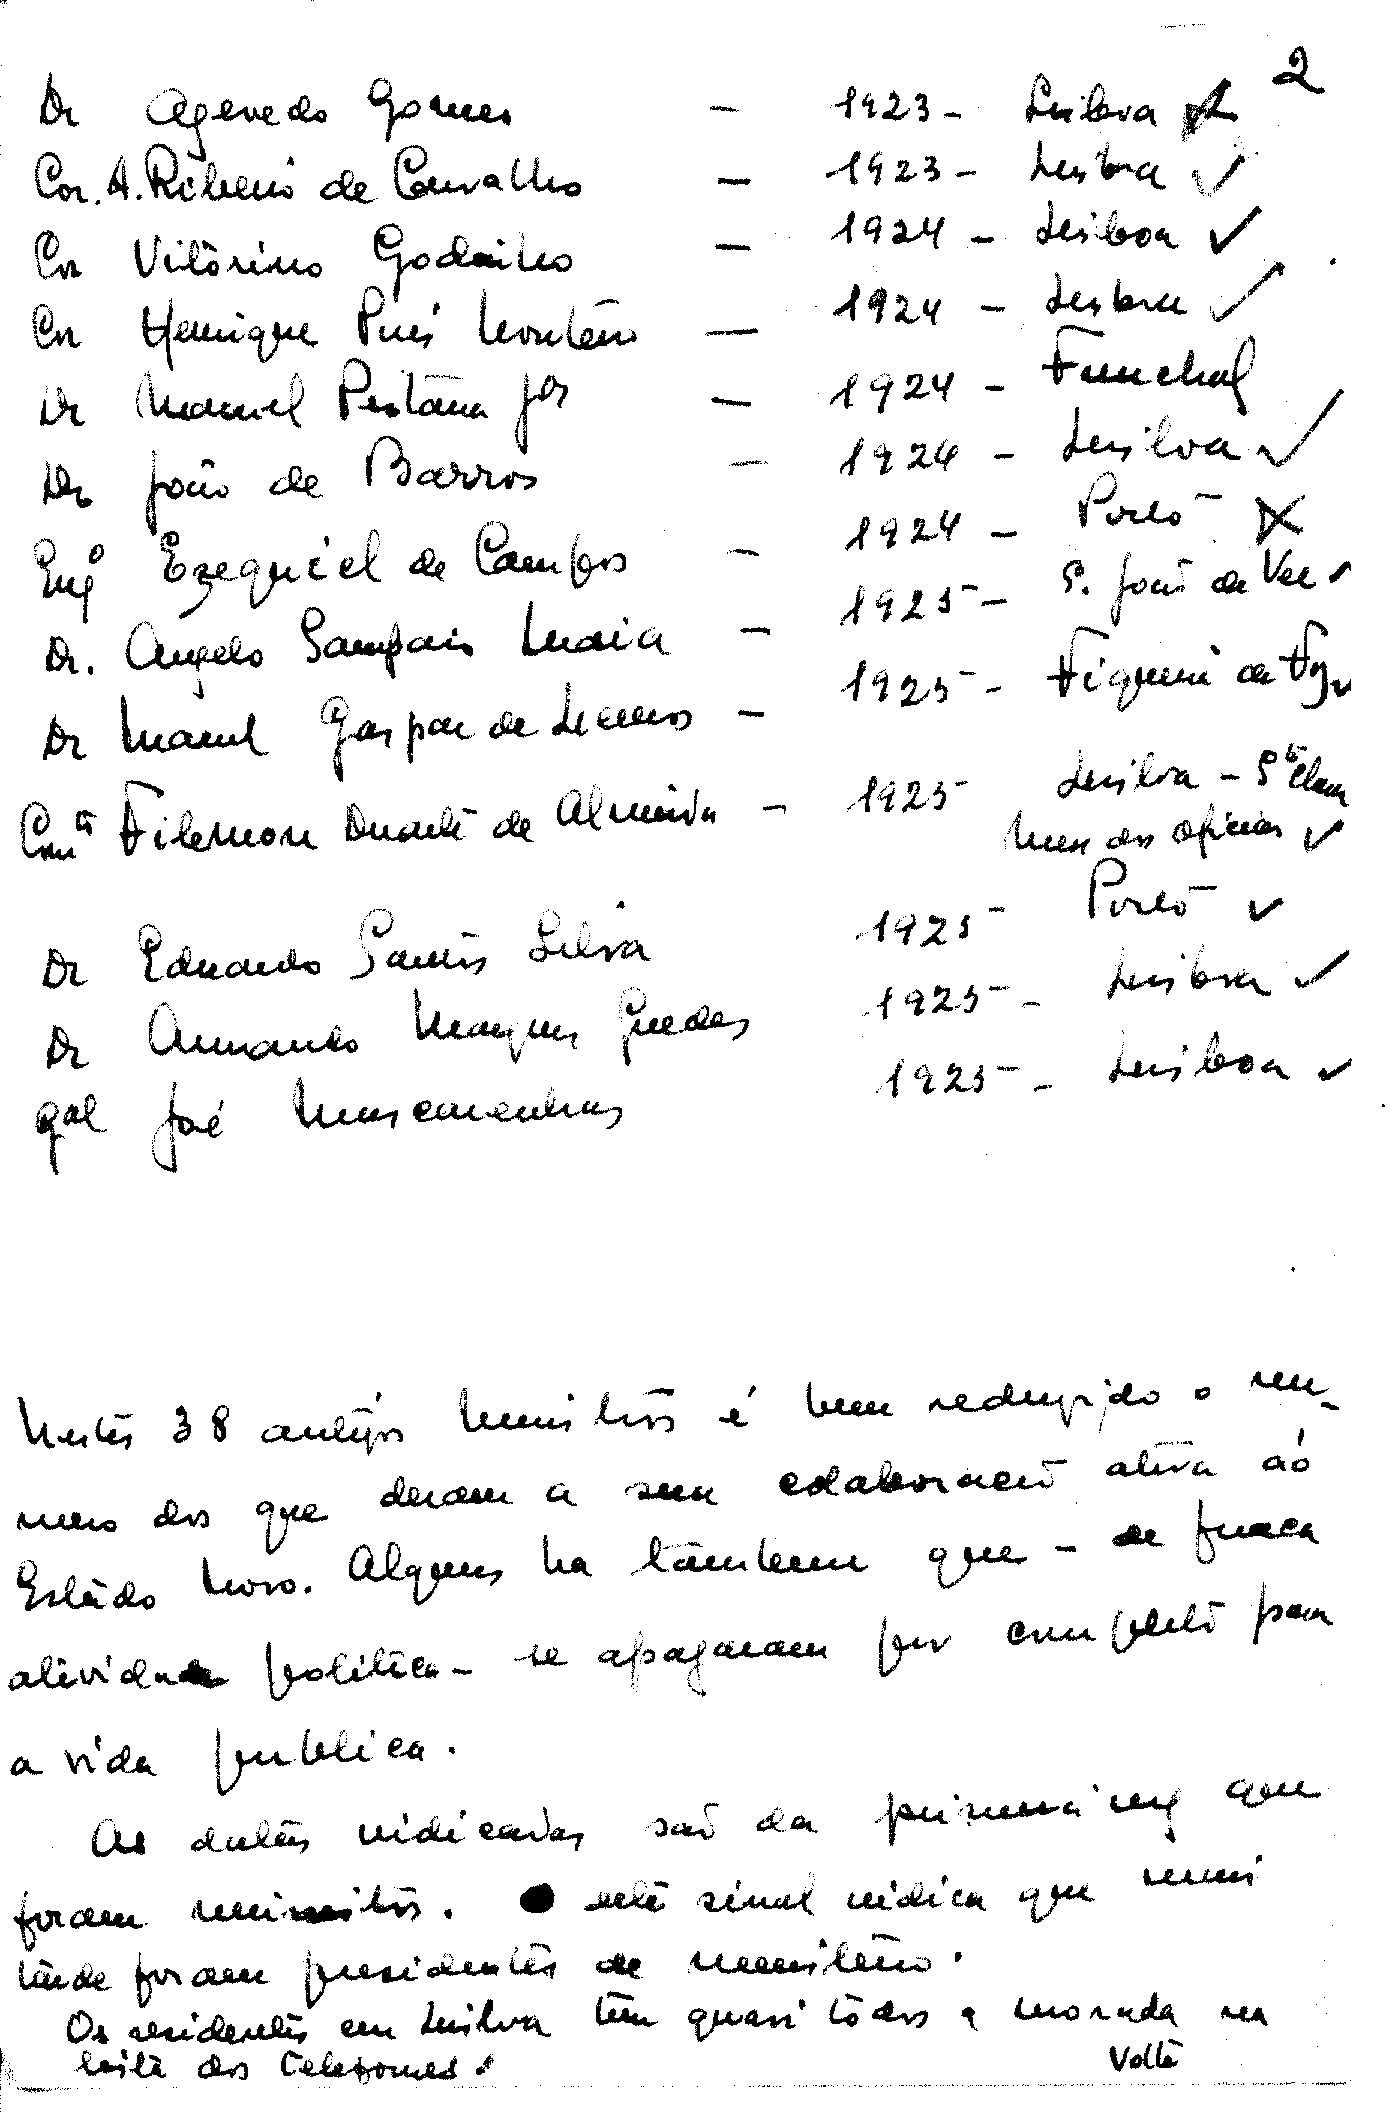 2
Dr Azevedo Gomes — 1923 - Lisboa
Cor. A. Ribeiro de Carvalho — 1923 - Lisboa ✓
Cor Vitorino Godinho — 1924 - Lisboa ✓
Cor Henrique Pires Monteiro — 1924 - Lisboa ✓
Dr Manuel Pestana Jor — 1924 - Funchal
Dr João de Barros — 1924 - Lisboa ✓
Engº Ezequiel de Campos — 1924 - Porto X
Dr. Angelo Sampaio Maia — 1925 - S. João de Ver ✓
Dr Manuel Gaspar de Lemos — 1925 - Figueira da Foz ✓
Comte Filemon Duarte de Almeida — 1925 Lisboa - Sta Clara
Messe dos Oficiais ✓
Dr Eduardo Santos Silva 1925 - Porto ✓
Dr Armando Marques Guedes 1925 - Lisboa ✓
gal José Mascarenhas 1925 - Lisboa ✓
Nestes 38 antigos Ministros é bem reduzido o nu-
mero dos que deram a sua colaboração ativa ao
Estado Novo. Alguns ha tambem que - de fraca
atividade politica - se apagaram por completo para
a vida publica.
As datas indicadas são da primeira vez que
foram ministros. ● este sinal indica que mais
tarde foram presidentes de ministerio.
Os residentes em Lisboa têm quasi todos a morada na
lista dos Telefones.
Volte